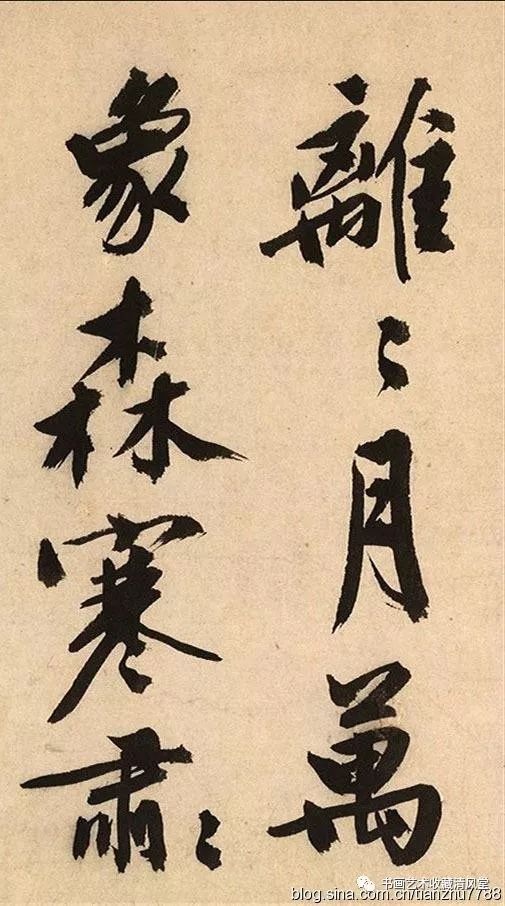 離〻月萬
象森寒肅〻
书画艺术收藏清风堂
blog.sina.com.cn/tianzhu7788